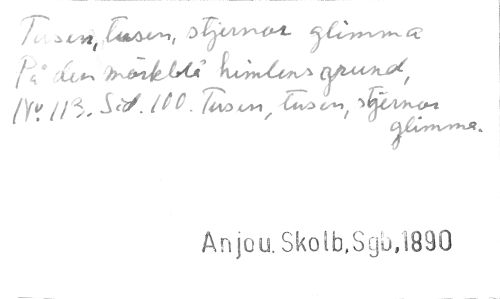 Tusen, tusen, stjernor glimma
På den mörkblå himlens grund,
No 113. Sid. 100. Tusen, tusen, stjernor
glimma.
Anjou. Skolb, Sgb, 1890